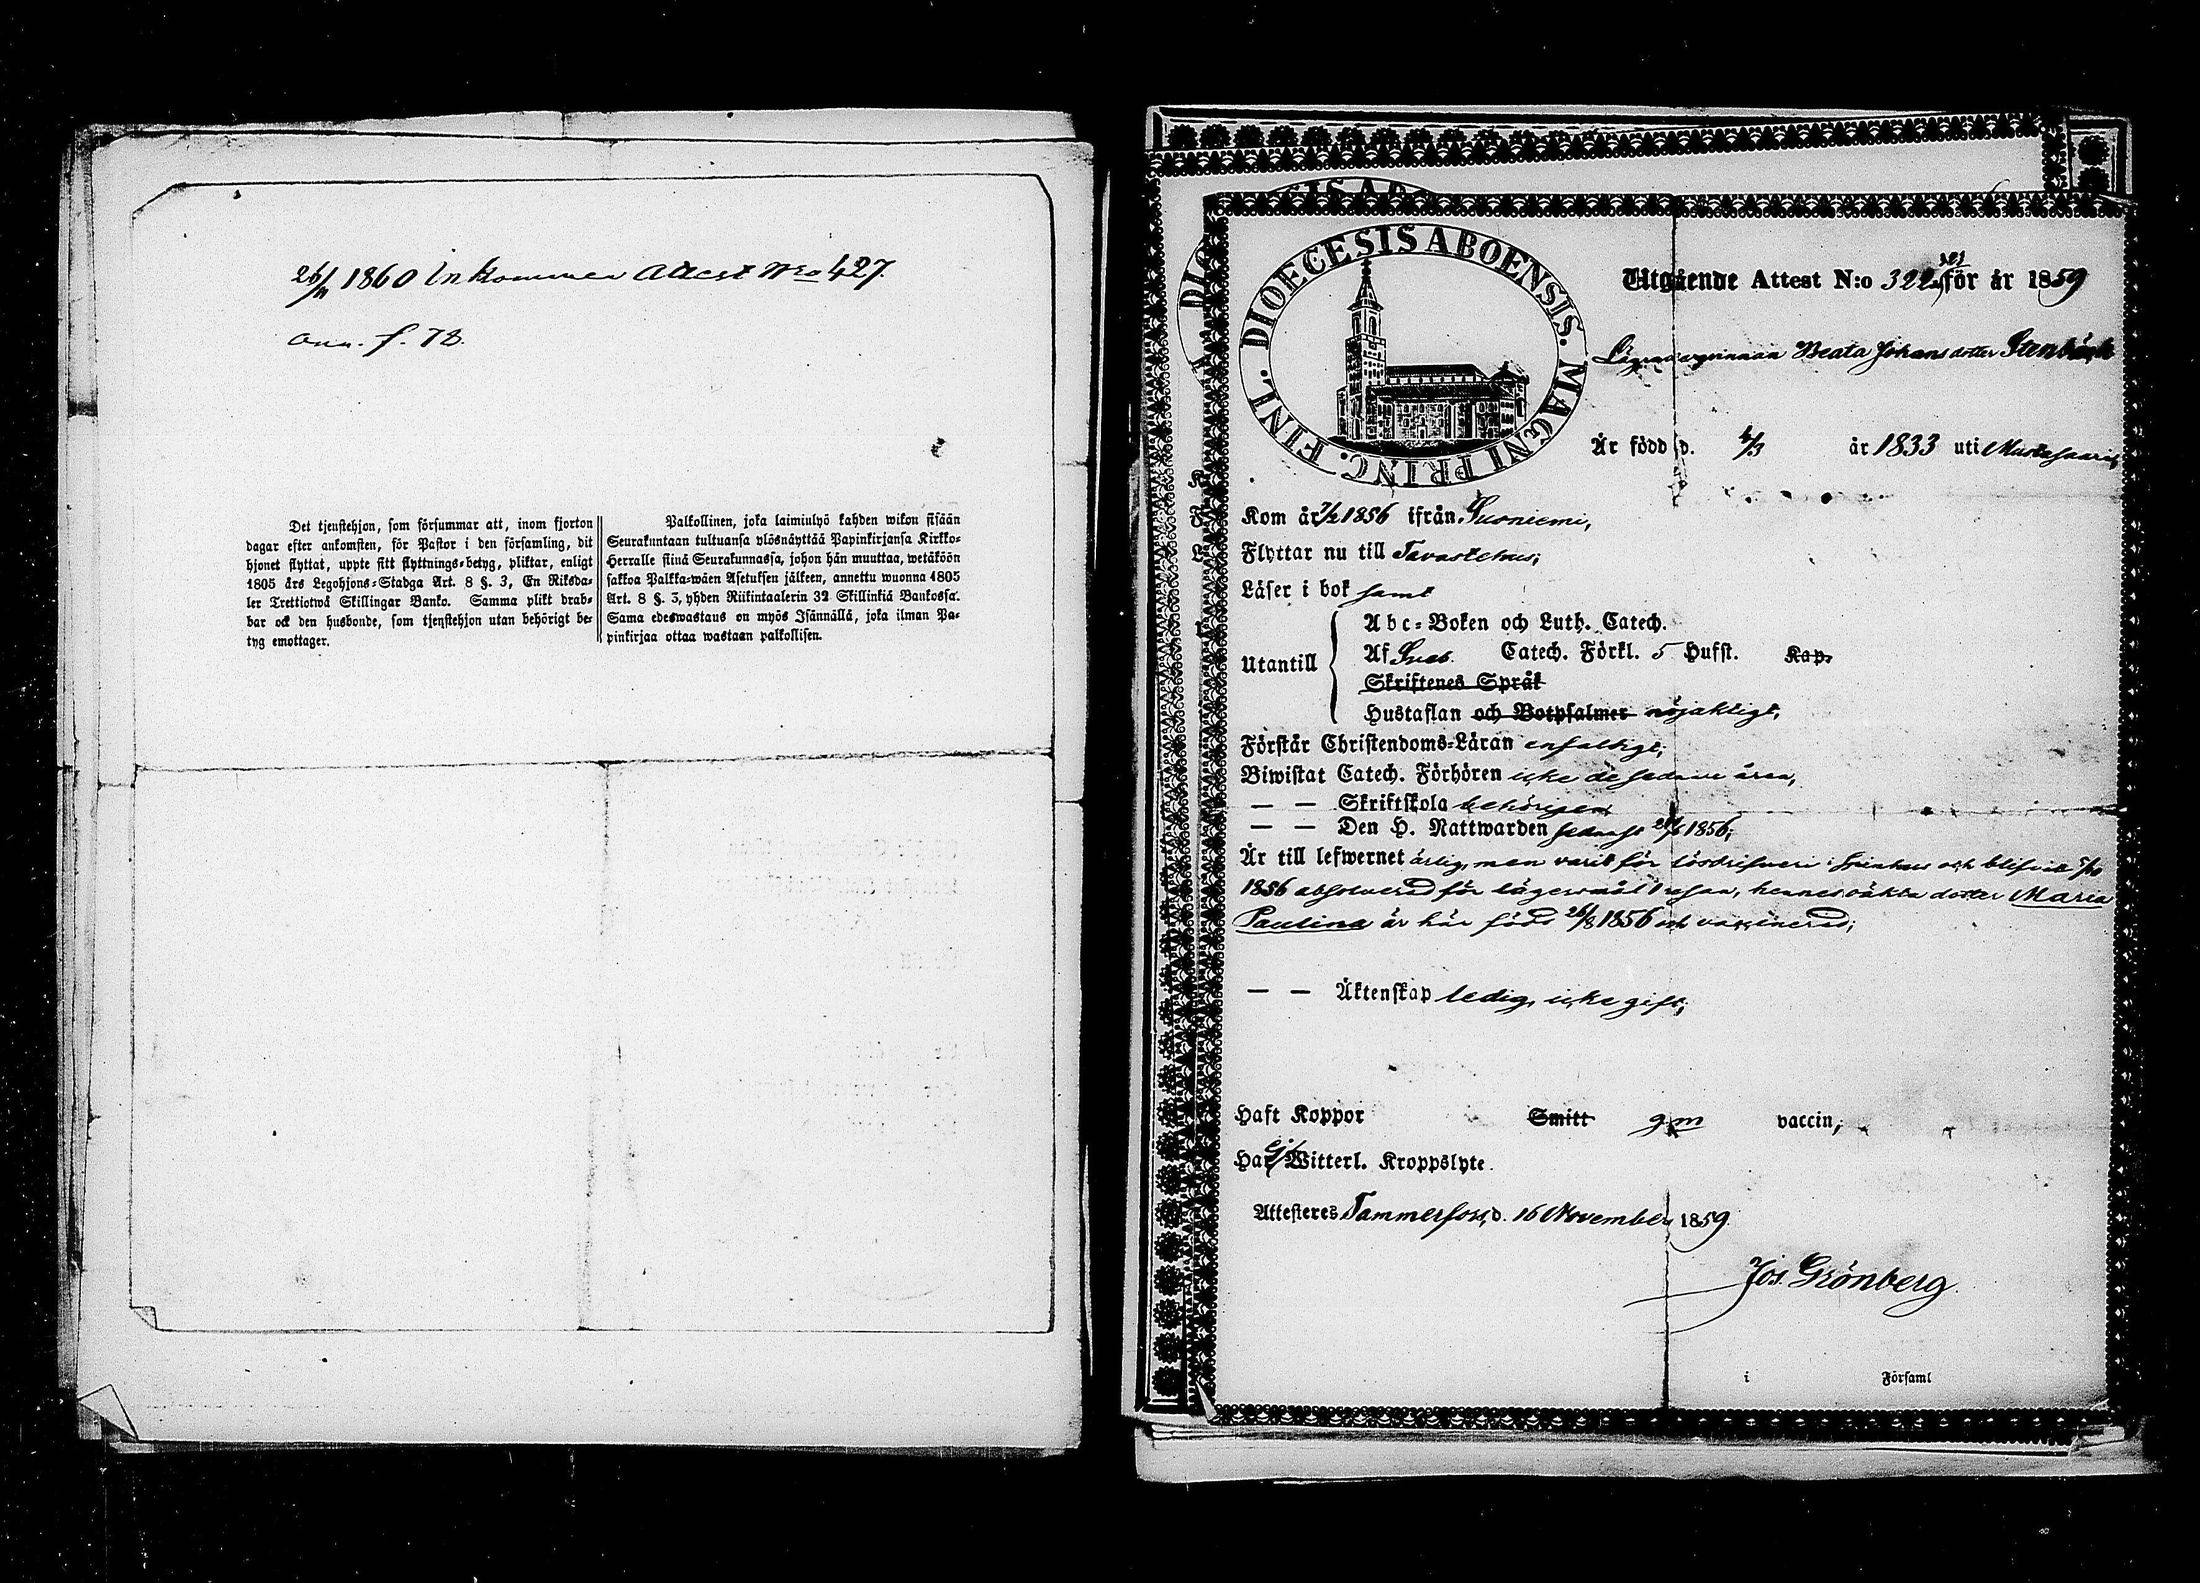 26/11 1860 Inkommen Attest No 427.
ann. f. 78.
Det tjenstehjon, som försummar att, inom fjorton
dagar efter ankomsten, för Pastor i den församling, dit
hjonet flyttat, uppte sitt flyttnings-betyg, pliktar, enligt
1805 års Legohjons-Stadga Art. 8 §. 3, En Riksda-
ler Trettiotwå Skillingar Banko. Samma plikt drab-
bar ock den husbonde, som tjenstehjon utan behörigt be-
tyg emottager.
Palkollinen, joka laimiulyö kahden wikon sisään
Seurakuntaan tultuansa ylösnäyttää Papinkirjansa Kirkko-
Herralle siinä Seurakunnassa, johon hän muuttaa, wetäköön
sakkoa Palkka-wäen Asetuksen jälkeen, annettu wuonna 1805
Art. 8 §. 3, yhden Riikintaalerin 32 Skillinkiä Bankossa.
Sama edeswastaus on myös Isännällä, joka ilman Pa-
pinkirjaa ottaa wastaan palkollisen.
DIOECESIS ABOENSIS. MAGNI PRINC. FINL.
Utgående Attest N:o 322 för år 1859
Lägersqvinnan Beata Johansdotter Stenbäck
Är född d. 4/3 år 1833 uti Mustasaari,
Kom år 7/2 1856 ifrån Suoniemi,
Flyttar nu till Tavastehus;
Läser i bok samt
Utantill
Abc-Boken och Luth. Catech.
Af Sveb. Catech. Förkl. 5 Hufst. Kap.
Skriftenes Språk
Hustaflan och Botpsalmer nöjaktigt,
Förstår Christendoms-Läran enfaldigt;
Biwistat Catech. Förhören icke de sednare åren,
— — Skriftskola behörigen
— — Den H. Nattwarden sednast 1856;
Är till lefwernet ärlig, men varit för lösdrifveri i Spinhus och blifvit
1856 absolverad för lägersmål 1 resan, hennes oäkta dotter Maria
Paulina är här född 26/8 1856 och vaccinerad;
— — Äktenskap ledig, icke gift;
Haft Koppor Smitt gm vaccin,
Har ej Witterl. Kroppslyte.
Attesteres Tammerfors, d. 16 November 1859.
Jos. Grönberg.
i Församl